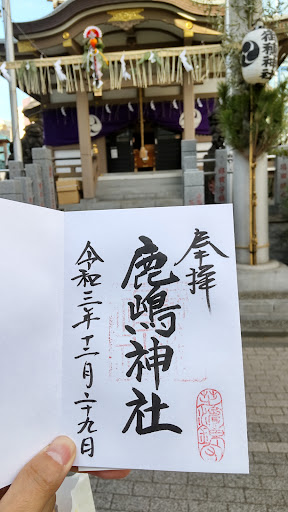 奉拝
鹿嶋神社
令和三年十二月二十九日